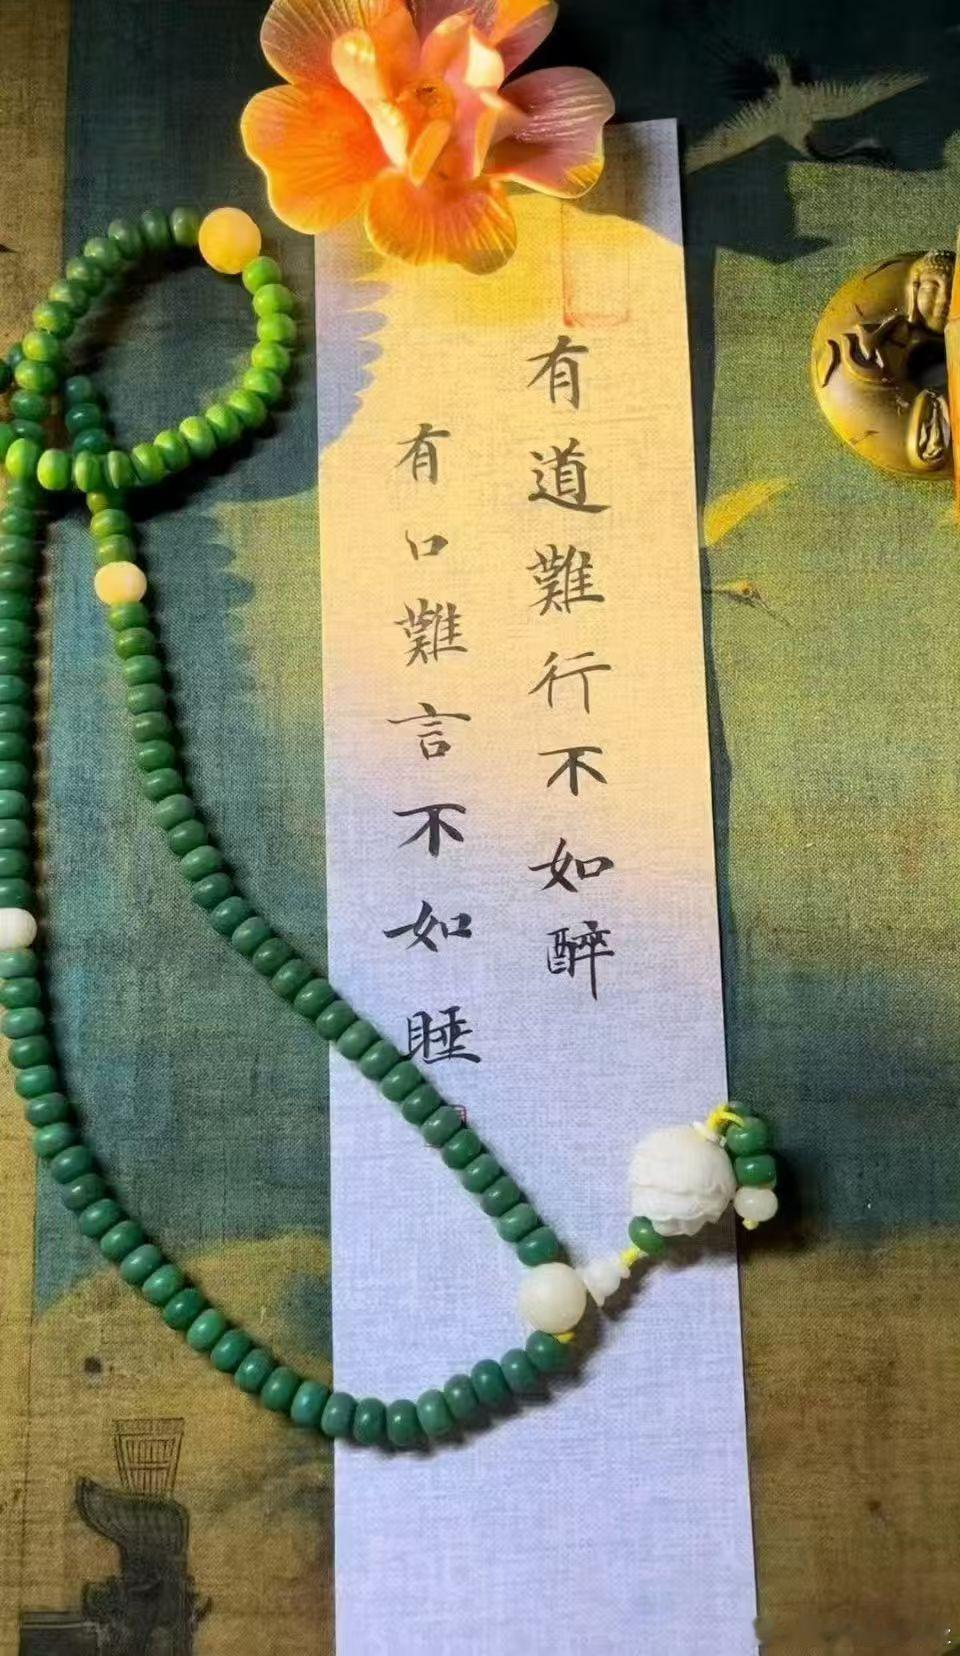 有道難行不如醉
有口難言不如睡